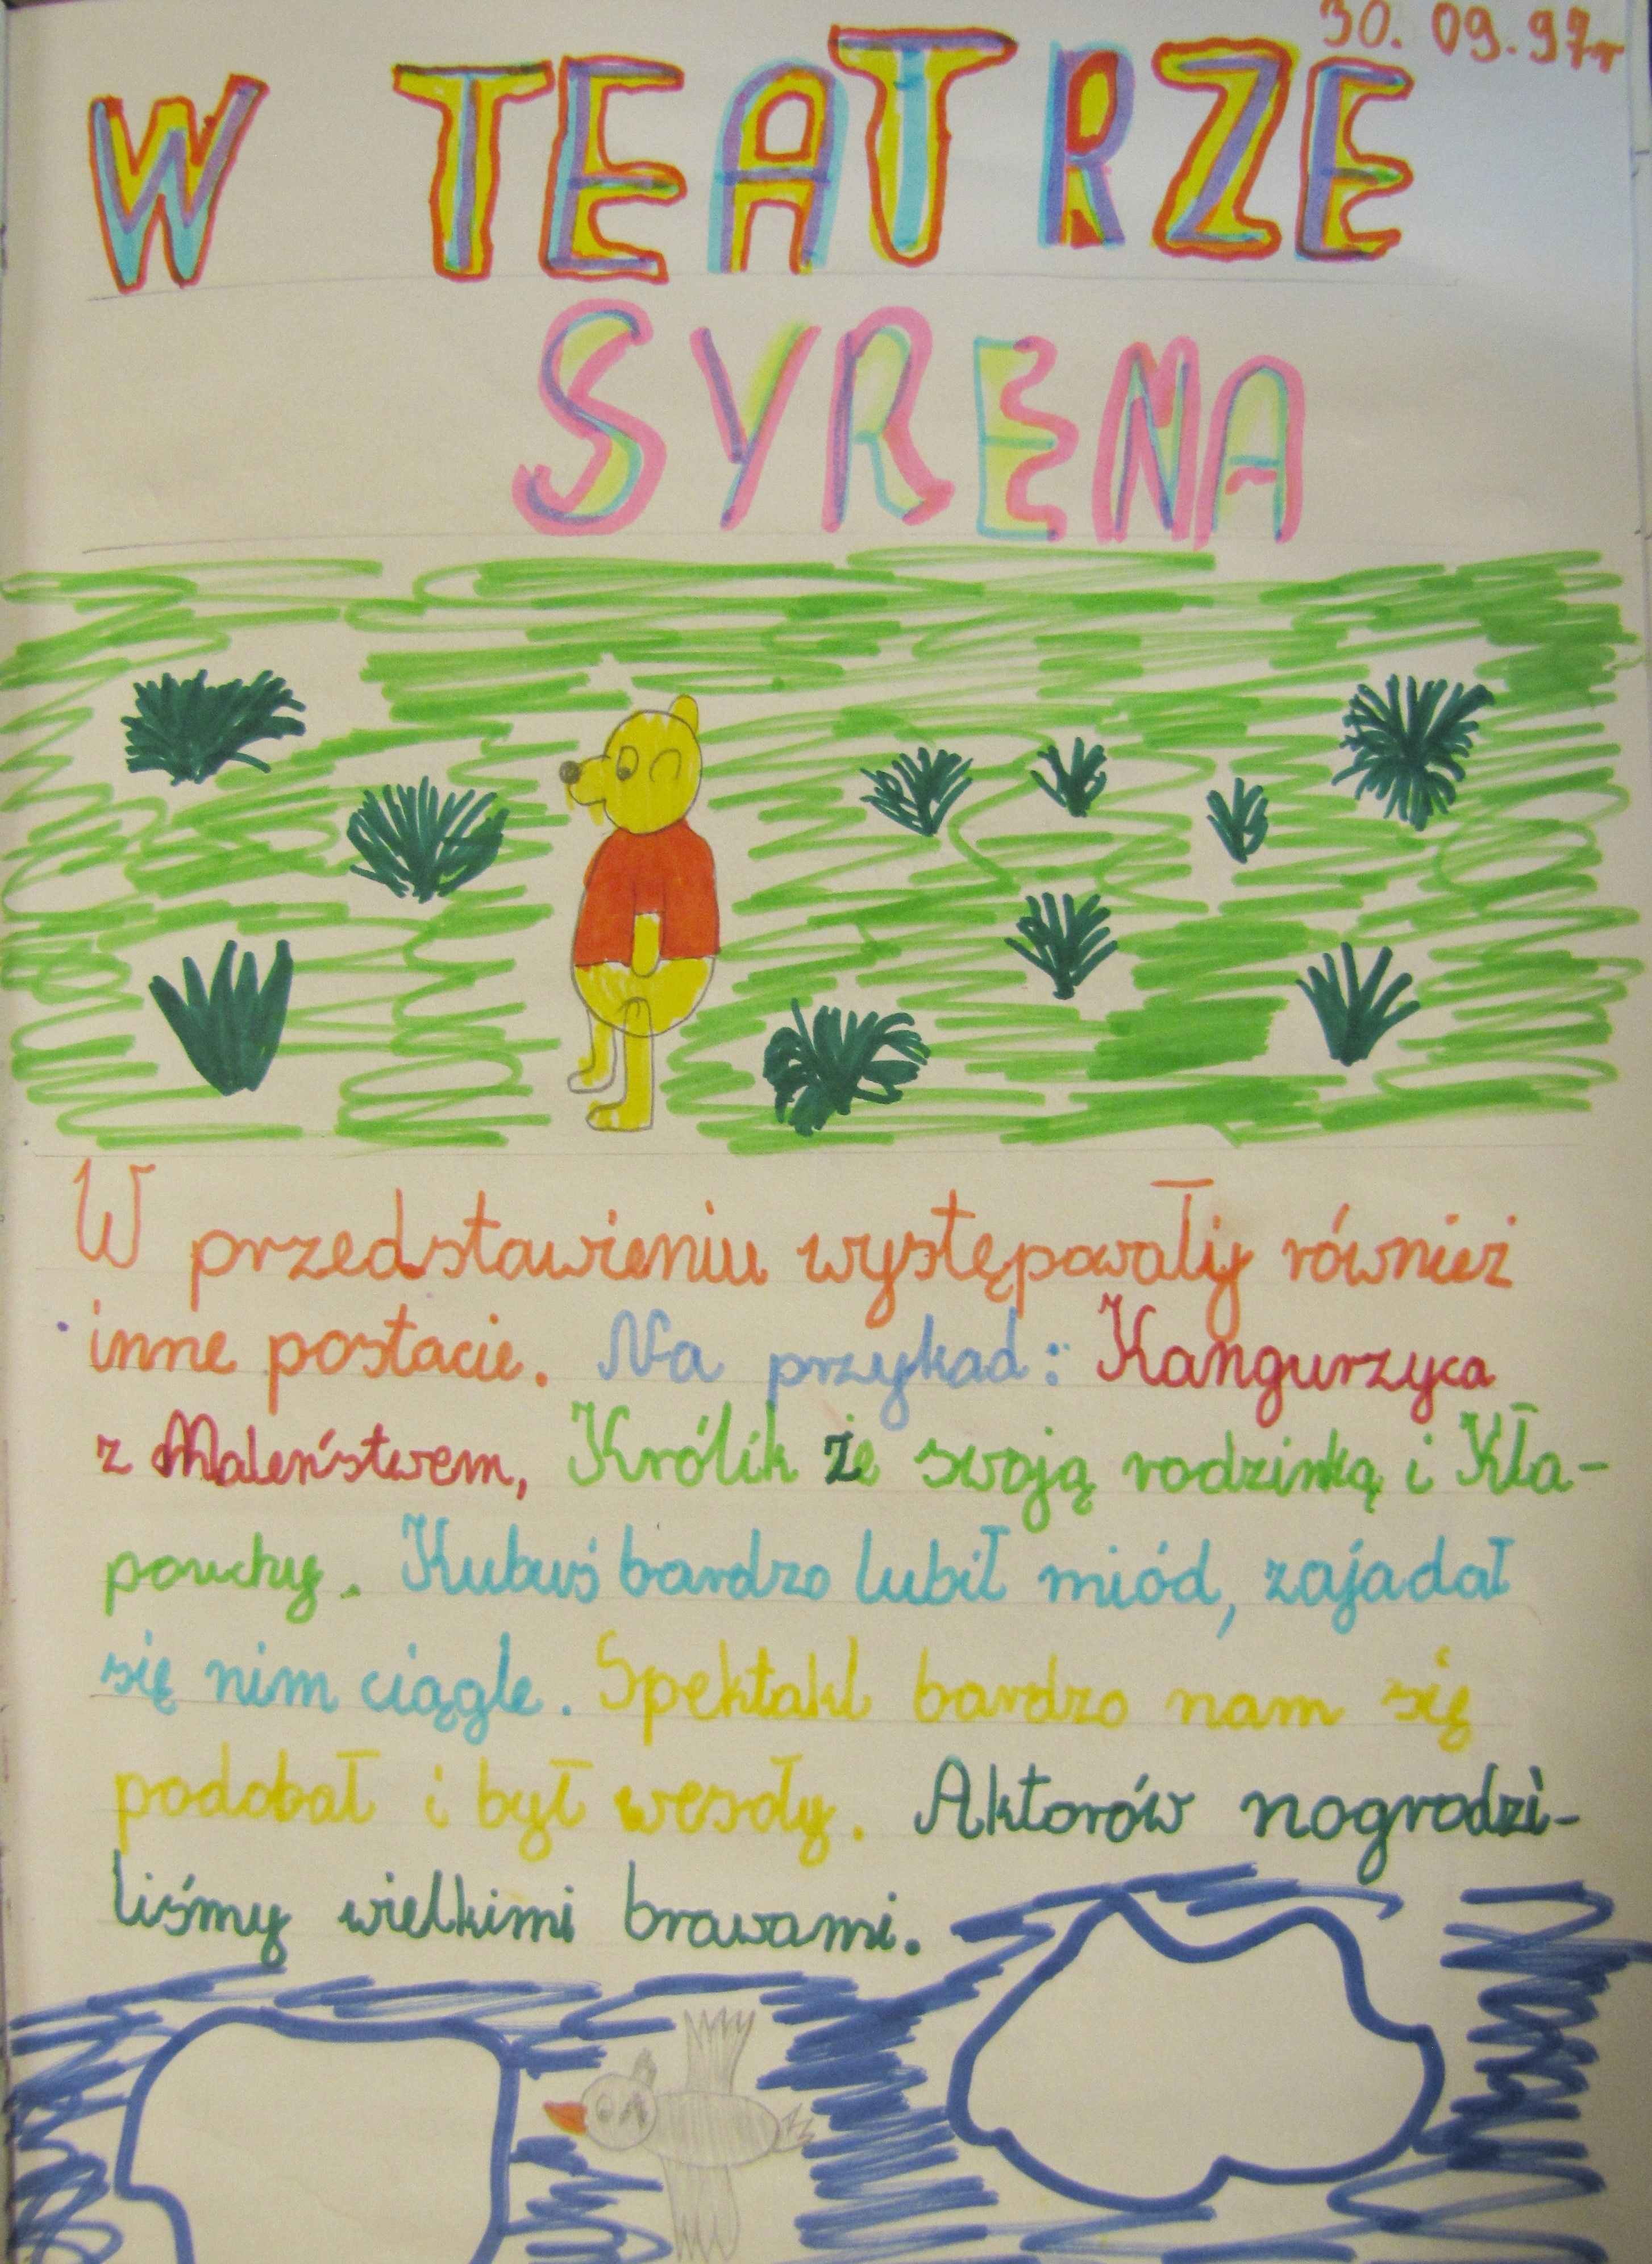 30.09.97r
W TEATRZE
SYRENA
W przedstawieniu występowały również
inne postacie. Na przykad: Kangurzyca
z Maleństwem, Królik ze swoją rodzinką i Kła-
pouchy. Kubuś bardzo lubił miód, zajadał
się nim ciągle. Spektakl bardzo nam się
podobał i był wesoły. Aktorów nogrodzi-
liśmy wielkimi brawami.